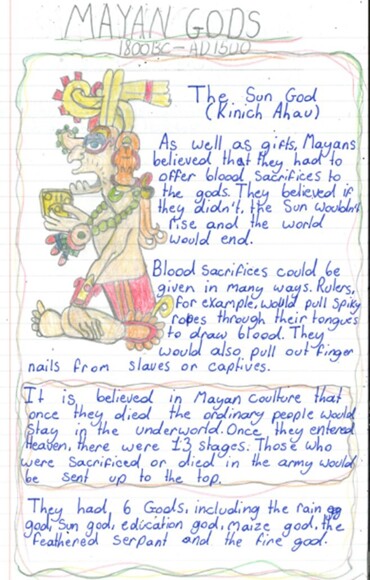 MAYAN GODS
1800BC - AD1500
The Sun God
(Kinich Ahau)
As well as gifts, Mayans
believed that they had to
offer blood sacrifices to
the gods. They believed if
they didn't, the Sun wouldn't
rise and the world
would end.
Blood sacrifices could be
given in many ways. Rulers,
for example, would pull spiky
ropes through their tongues
to draw blood. They
would also pull out finger
nails from slaves or captives.
It is believed in Mayan Coulture that
once they died the ordinary people would
stay in the underworld. Once they entered
Heaven, there were 13 stages. Those who
were Sacrificed or died in the army would
be sent up to the top.
They had, 6 Goods, including the rain
god, Sun god, education god, maize god, the
feathered serpant and the fire god.